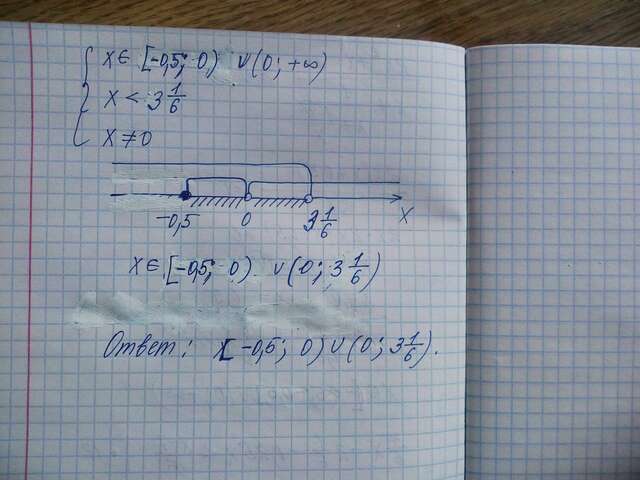 x ∈ [-0,5; 0) ∪ (0; +∞)
x < 3 1/6
x ≠ 0
-0,5 0 3 1/6 x
x ∈ [-0,5; 0) ∪ (0; 3 1/6)
Ответ: x[-0,5; 0) ∪ (0; 3 1/6).